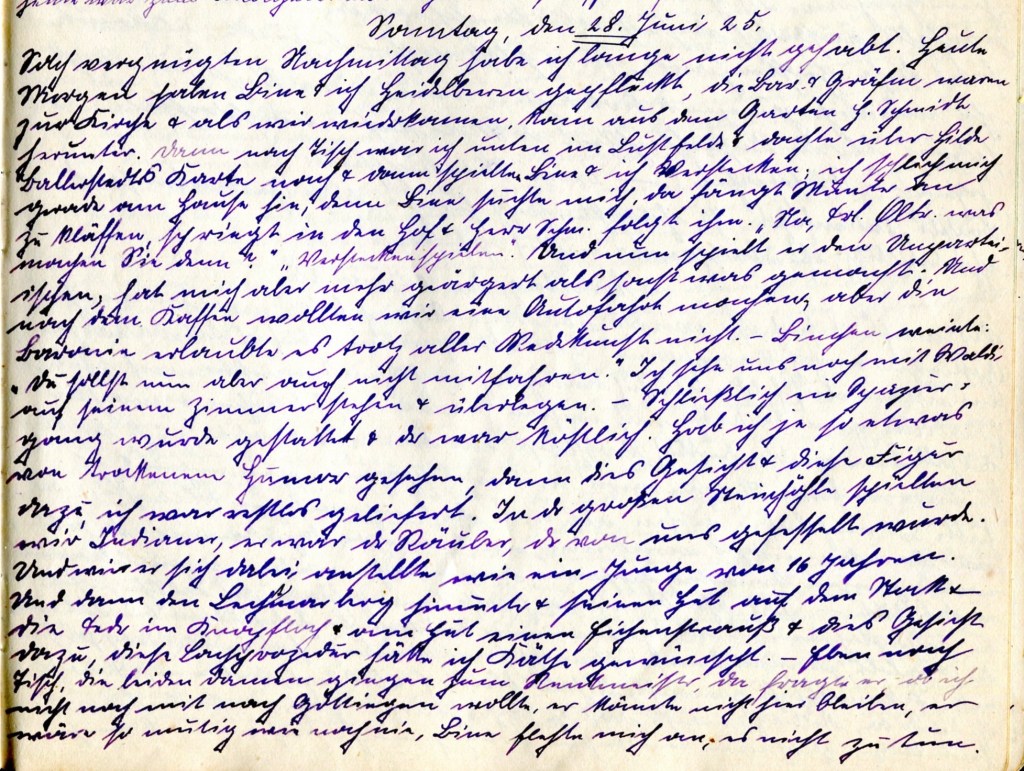 Sonntag, den 28. Juni 25.
Solch vergnügten Nachmittag habe ich lange nicht gehabt. Heute
Morgen haben Bine & ich Heidelbeeren gepflückt, die Bar. & Gräfin waren
zur Kirche & als wir wiederkamen, kam aus dem Garten H. Schmidt
herunter. Dann nach Tisch war ich unten im Luftfelde & dachte über Hilde
Ballerstedts Karte nach & dann spielten Bine & ich Verstecken; ich schlich mich
gerade am Hause hin, denn Bine suchte mich, da fängt Munter an
zu kläffen, springt in den Hof & Herr Schm. folgt ihm. „Na, Frl. Oltr. was
machen Sie denn?" „Versteckenspielen". Und nun spielt er den Unpartei-
ischen, hat mich aber mehr geärgert als sonst was gemacht. Und
nach dem Kaffee wollten wir eine Autofahrt machen, aber die
Baronin erlaubte es trotz aller Redekunst nicht. – Binchen weinte:
„Du sollst nun aber auch nicht mitfahren." Ich sehe uns noch mit Waldi
auf seinem Zimmer stehen & überlegen. – Schließlich ein Spazier-
gang wurde gestattet & der war köstlich. Hab ich je so etwas
von trockenem Humor gesehen, dann dies Gesicht & diese Figur
dazu, ich war restlos geliefert. In der großen Steinhöhle spielten
wir Indianer, er war der Räuber, der von uns gefesselt wurde.
Und wie er sich dabei anstellte wie ein Junge von 16 Jahren.
Und dann den berg hinunter & seinen Hut auf dem Stock &
die Feder im Knopfloch & am Hut einen Eichenstrauß & dies Gesicht
dazu, diese hätte ich Käthe gewünscht. – Eben nach
Tisch, die beiden Damen gingen zum Rentmeister, da fragte er, ob ich
nicht noch mit nach Göttingen wollte, er könnte nicht hier bleiben, er
wäre so mutig wie noch nie, Bine flehte mich an, es nicht zu tun.